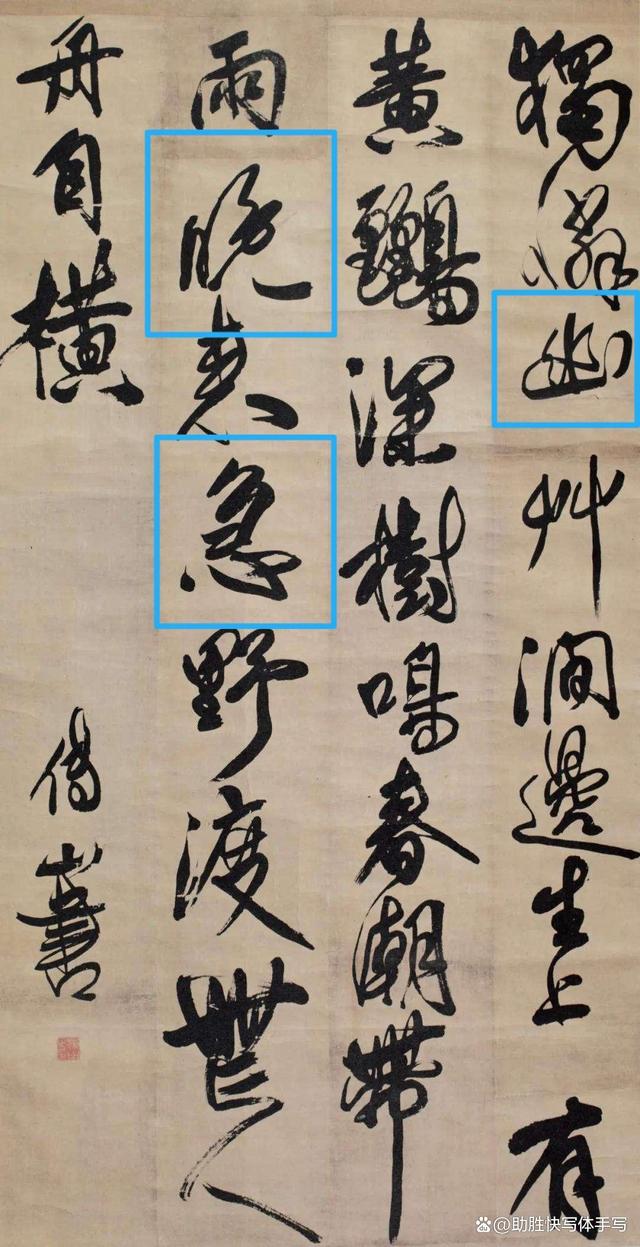 獨憐幽艸澗邊生上有
黃鸝深樹鳴春潮帶
雨晚來急野渡無人
舟自橫
傅山書
助胜快写体手写